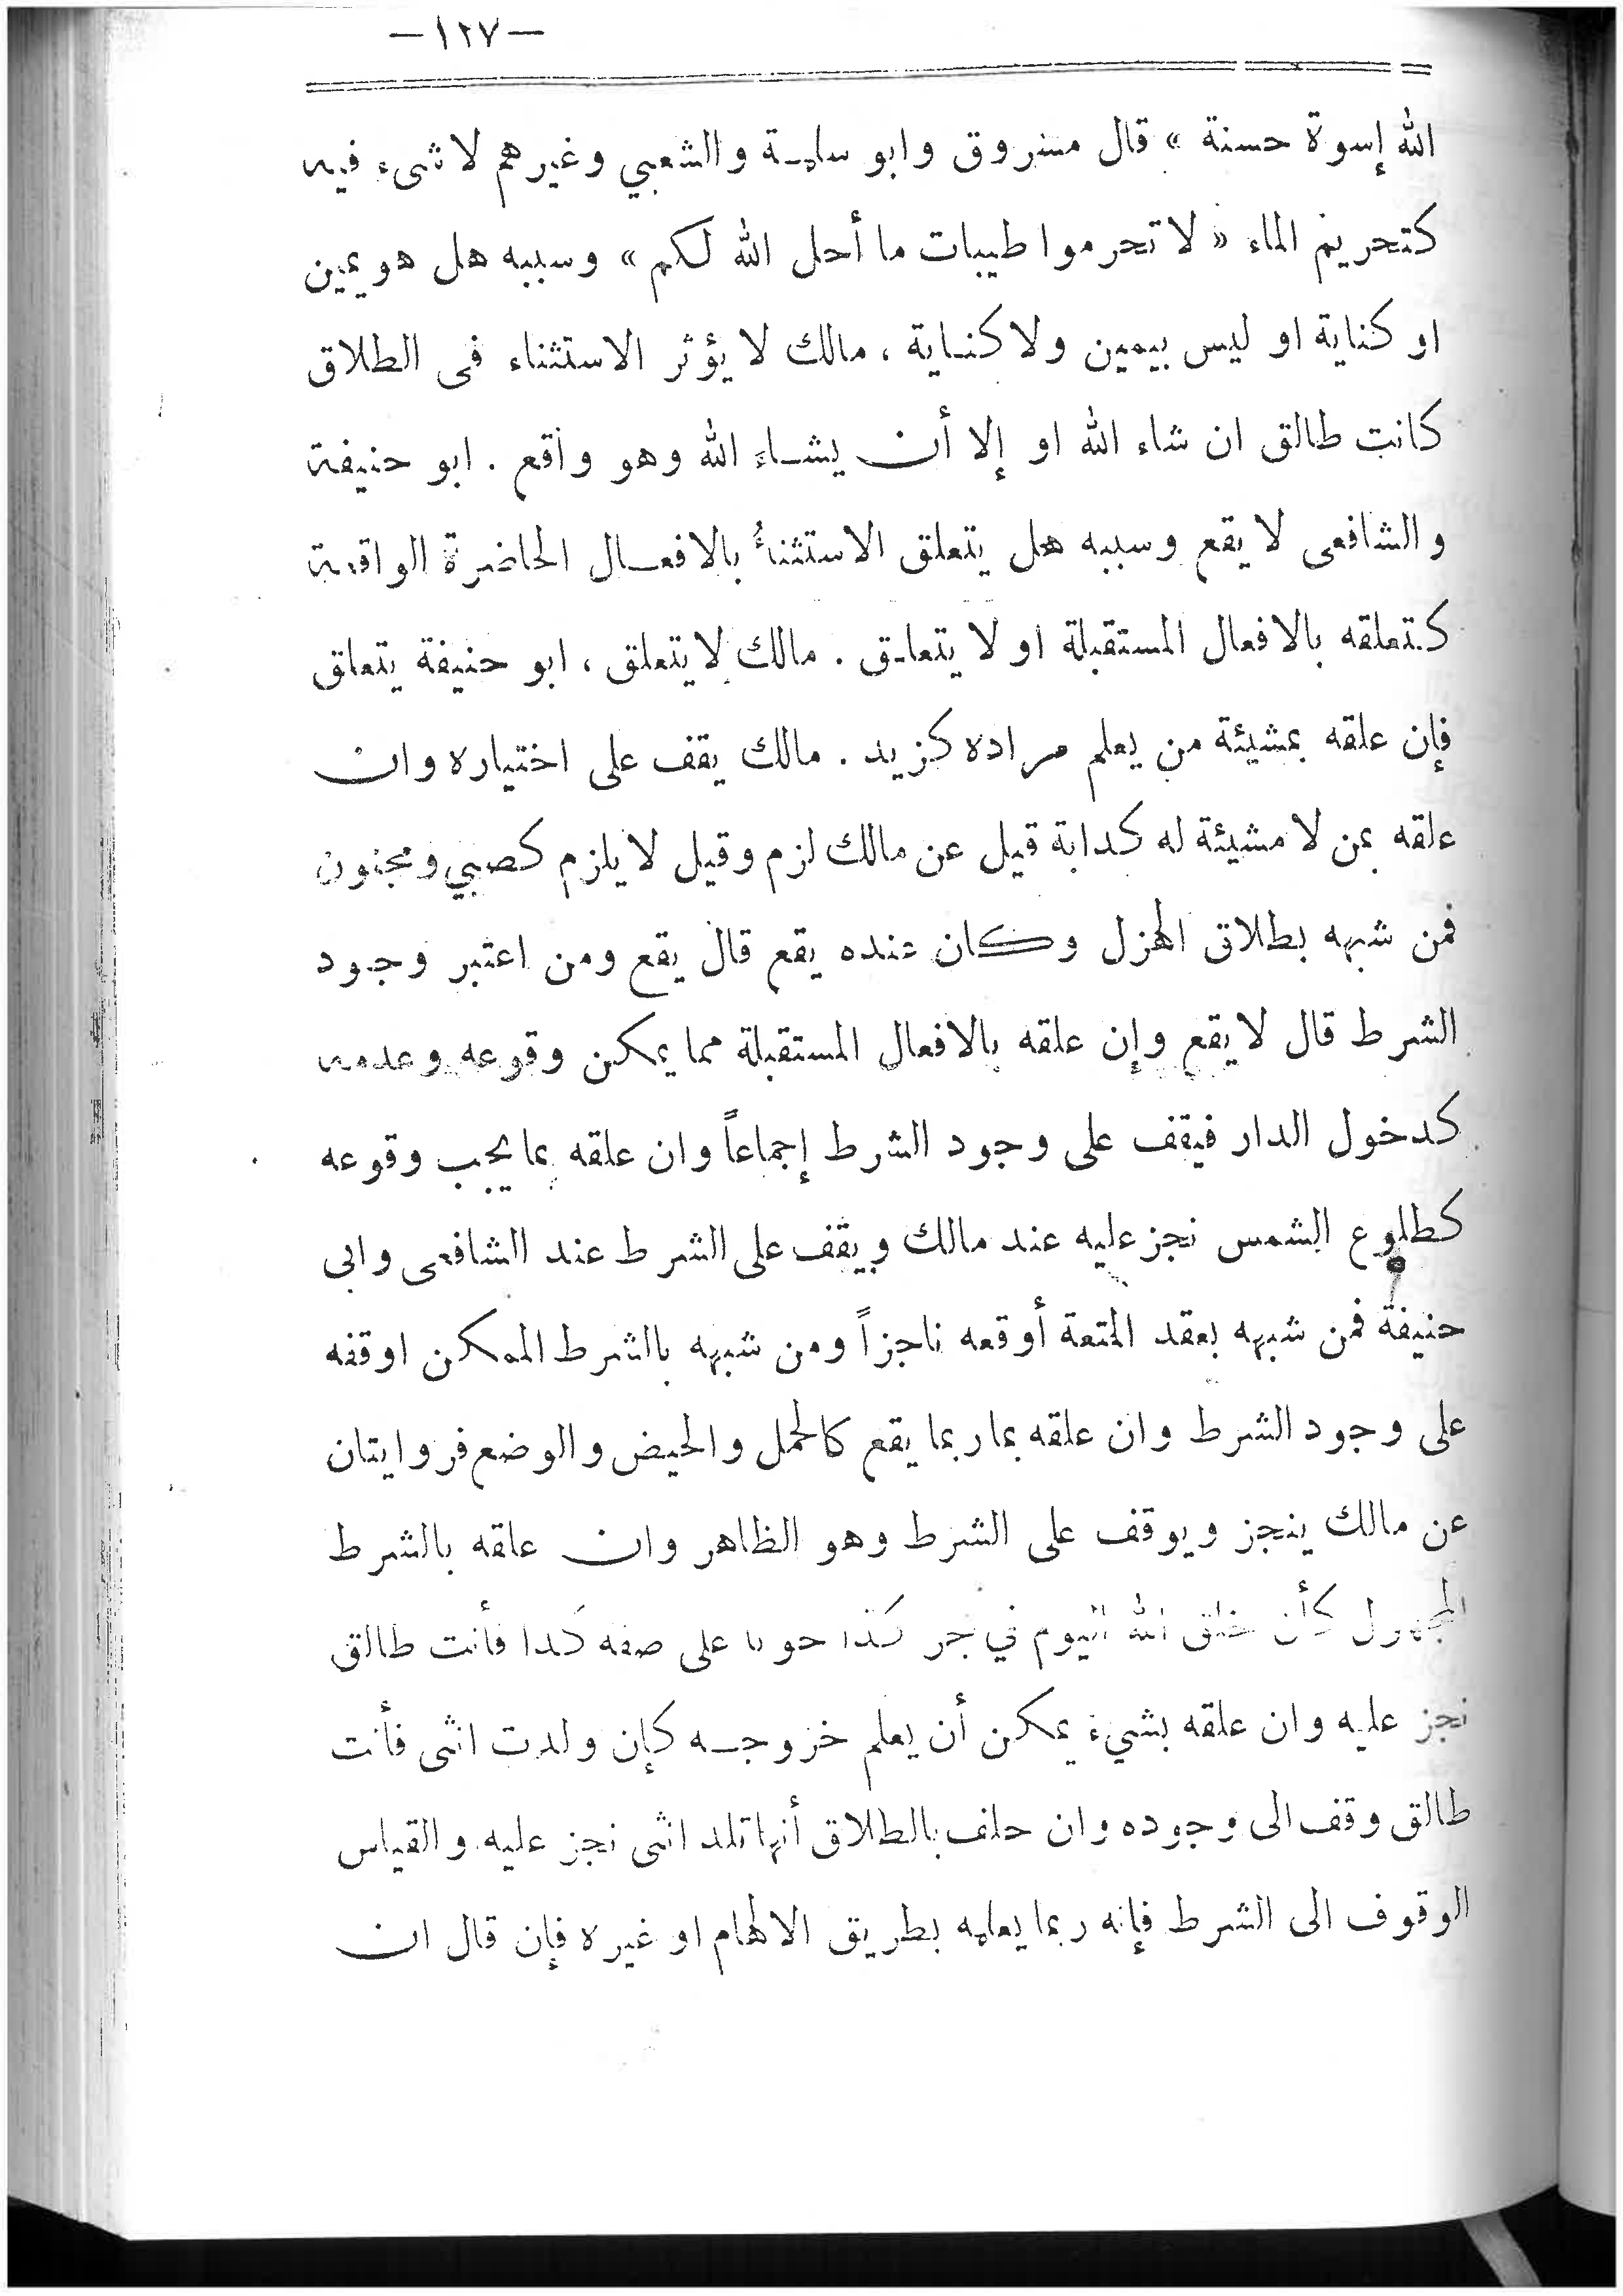 —١٢٧—
الله إسوة حسنة » قال مسروق وابو سلمة والشعبي وغيرهم لا شىء فيه
كتحريم الماء « لا تحرموا طيبات ما أحل الله لكم » وسببه هل هو يمين
او كناية او ليس بيمين ولا كناية ، مالك لا يؤثر الاستثناء فى الطلاق
كانت طالق ان شاء الله او إلا أن يشاء الله وهو واقع . ابو حنيفة
والشافعى لا يقع وسببه هل يتعلق الاستثناء بالافعال الحاضرة الواقعة
كتعلقه بالافعال المستقبلة او لا يتعلق . مالك لا يتعلق ، ابو حنيفة يتعلق
فإن علقه بمشيئة من يعلم مراده كزيد . مالك يقف على اختياره وان
علقه بمن لا مشيئة له كدابة قيل عن مالك لزم وقيل لا يلزم كصبي ومجنون
فمن شبهه بطلاق الهزل وكان عنده يقع قال يقع ومن اعتبر وجود
الشرط قال لا يقع وإن علقه بالافعال المستقبلة مما يمكن وقوعه وعدمه
كدخول الدار فيقف على وجود الشرط إجماعاً وان علقه بما يجب وقوعه
كطلوع الشمس نجز عليه عند مالك ويقف على الشرط عند الشافعى وابى
حنيفة فمن شبهه بعقد المتعة أوقعه ناجزاً ومن شبهه بالشرط الممكن اوقفه
على وجود الشرط وان علقه بما ربما يقع كالحمل والحيض والوضع فروايتان
عن مالك ينجز ويوقف على الشرط وهو الظاهر وان علقه بالشرط
المجهول كأن خلق الله اليوم في بحر كذا حوتا على صفة كذا فأنت طالق
نجز عليه وان علقه بشيء يمكن أن يعلم خروجه كإن ولدت انثى فأنت
طالق وقف الى وجوده وان حلف بالطلاق أنها تلد انثى نجز عليه والقياس
الوقوف الى الشرط فإنه ربما يعلمه بطريق الالهام او غيره فإن قال ان